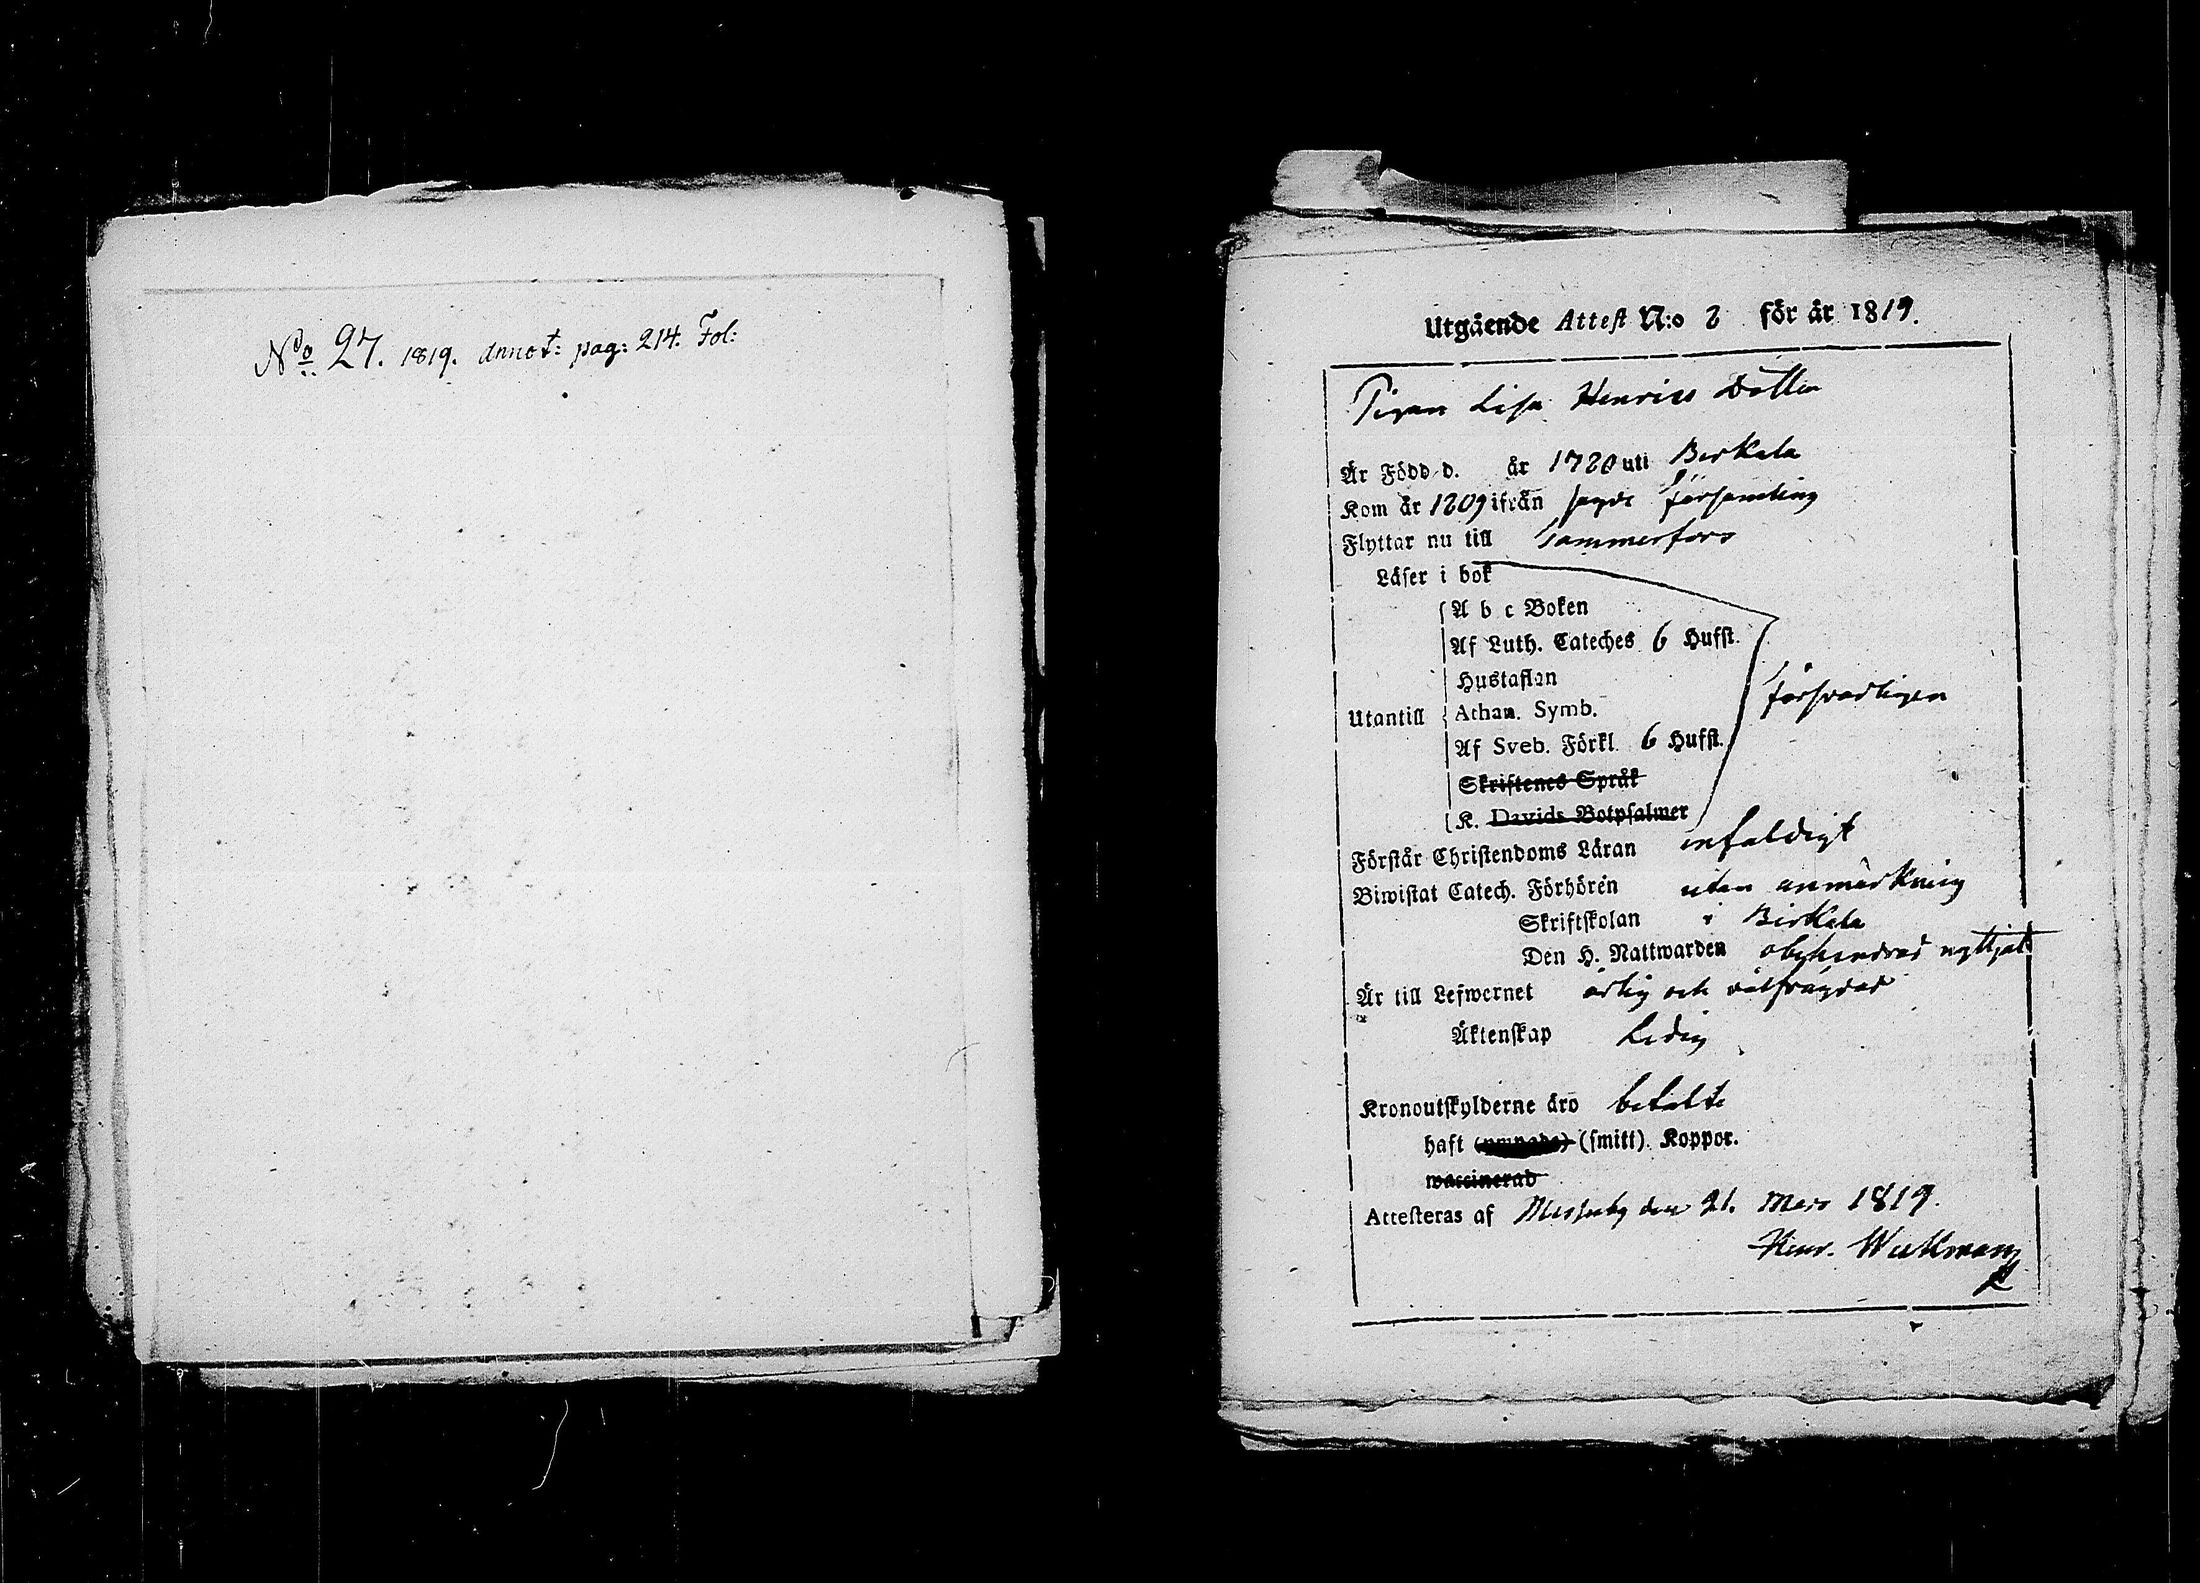 No 27. 1819. annot: pag: 214. Fol:
Utgående Attest N:o 8 för år 1819.
Pigan Lisa Henrics Dotter
Är Född d. år 1780 uti Birkala
Kom år 1809 ifrån sagde församling
Flyttar nu till Tammerfors
Läser i bok
A b c Boken
Af Luth. Cateches 6 Hufst.
Hustaflan
Utantill
Athan. Symb.
försvarligen
Af Sveb. Förkl. 6 Hufst.
Skriftenes Språk
K. Davids Botpsalmer
Förstår Christendoms Läran enfaldigt
Biwistat Catech. Förhören utan anmärkning
Skriftskolan i Birkala
Den H. Nattwarden obehindrad nyttjat
Är till Lefwernet ärlig och välfrägdad
Äktenskap Ledig
Kronoutskylderne äro betalte
haft (ympade) (smitt). Koppor.
waccinerad
Attesteras af Messuby den 21. Mars 1819.
Henr.